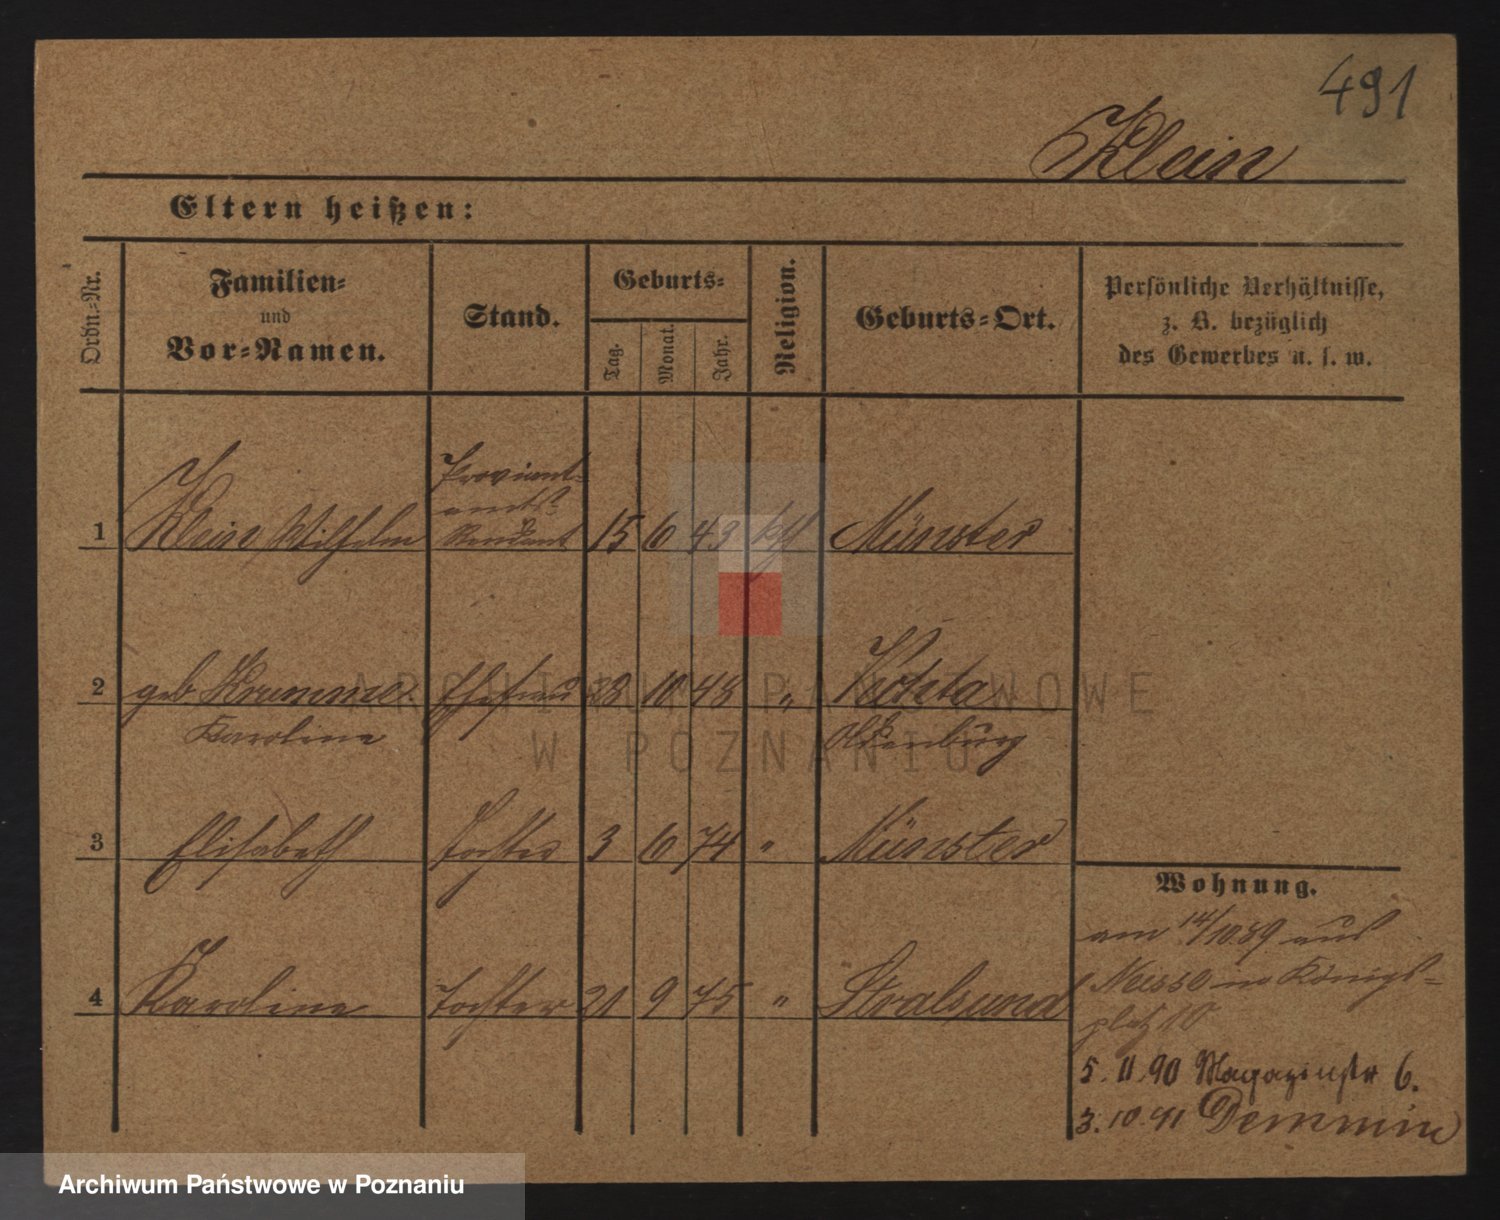 491
Klein
Eltern heißen:
Ordn.-Nr.
Familien-
und
Vor-Namen.
Stand.
Geburts-
Tag.
Monat.
Jahr.
Religion.
Geburts-Ort.
Persönliche Verhältnisse,
z. B. bezüglich
des Gewerbes u. s. w.
Proviant-
amts
1 Klein Wilhelm Rendant 15 6 43 Münster
2 geb Krumme Ehefrau 28 10 48 "
Karoline Oldenburg
3 Elisabeth Tochter 3 6 74 " Münster
4 Karoline Tochter 21 9 75 " Stralsund
Wohnung.
am 14/10.89 aus
Neisse in Königs-
platz 10
5. 11. 90 Magazinstr 6.
3. 10. 91 Demmin
ARCHIWUM PAŃSTWOWE
W POZNANIU
Archiwum Państwowe w Poznaniu